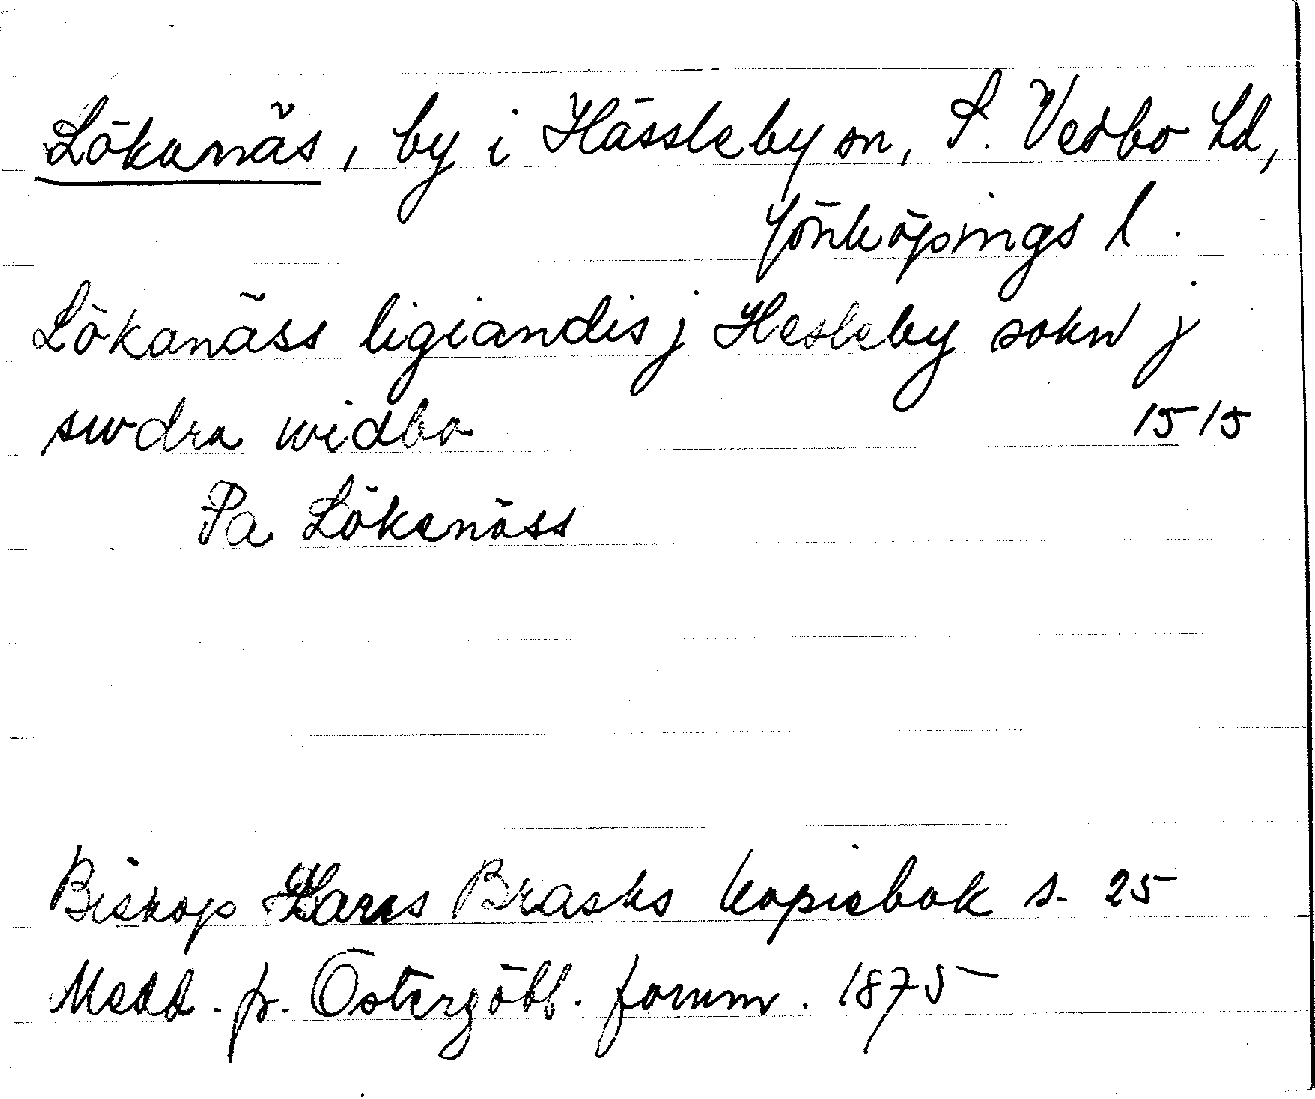 Lökanäs, by i Hässleby sn, S. Vedbo hd,
Jönköpings l.
Lökanäss ligiandis j Hesleby sokn j
swdra widbo 1515
Pa Lökanäss
Biskop Hans Brasks kopiebok s. 25
Medd. fr. Östergötl. fornm. 1875